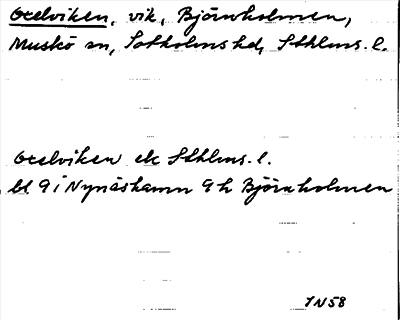 Oxelviken, vik, Björnholmen,
Muskö sn, Sotholms hd, Sthlms. l.
Oxelviken ek Sthlms. l.
bl 9 i Nynäshamn 9 h Björnholmen
IN58